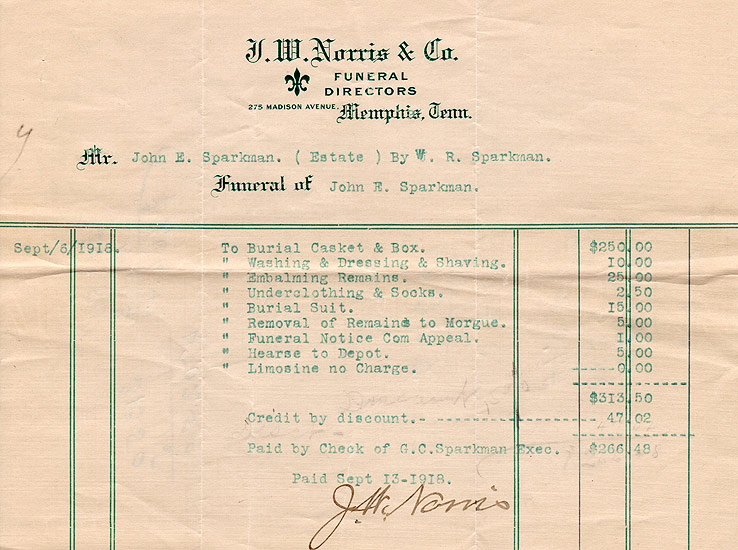 J. W. Norris & Co.
FUNERAL
DIRECTORS
275 MADISON AVENUE. Memphis, Tenn.
Mr. John E. Sparkman. ( Estate ) By W. R. Sparkman.
Funeral of John E. Sparkman.
Sept/6/1918. To Burial Casket & Box. $250.00
" Washing & Dressing & Shaving. 10.00
" Embalming Remains. 25.00
" Underclothing & Socks. 2.50
" Burial Suit. 15.00
" Removal of Remains to Morgue. 5.00
" Funeral Notice Com Appeal. 1.00
" Hearse to Depot. 5.00
" Limosine no Charge. ------0.00
$313.50
Credit by discount.- ---------------------- 47.02
Paid by Check of G.C.Sparkman Exec. $266.48
Paid Sept 13-1918.
J.W. Norris